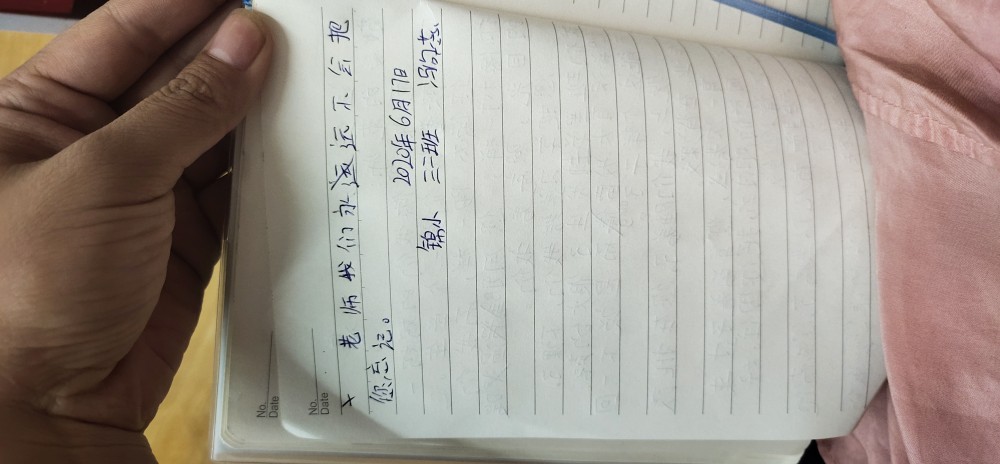 No.
Date
No.
Date
老师我们永远不会把
您忘记。
2020年6月17日
锦小 三三班